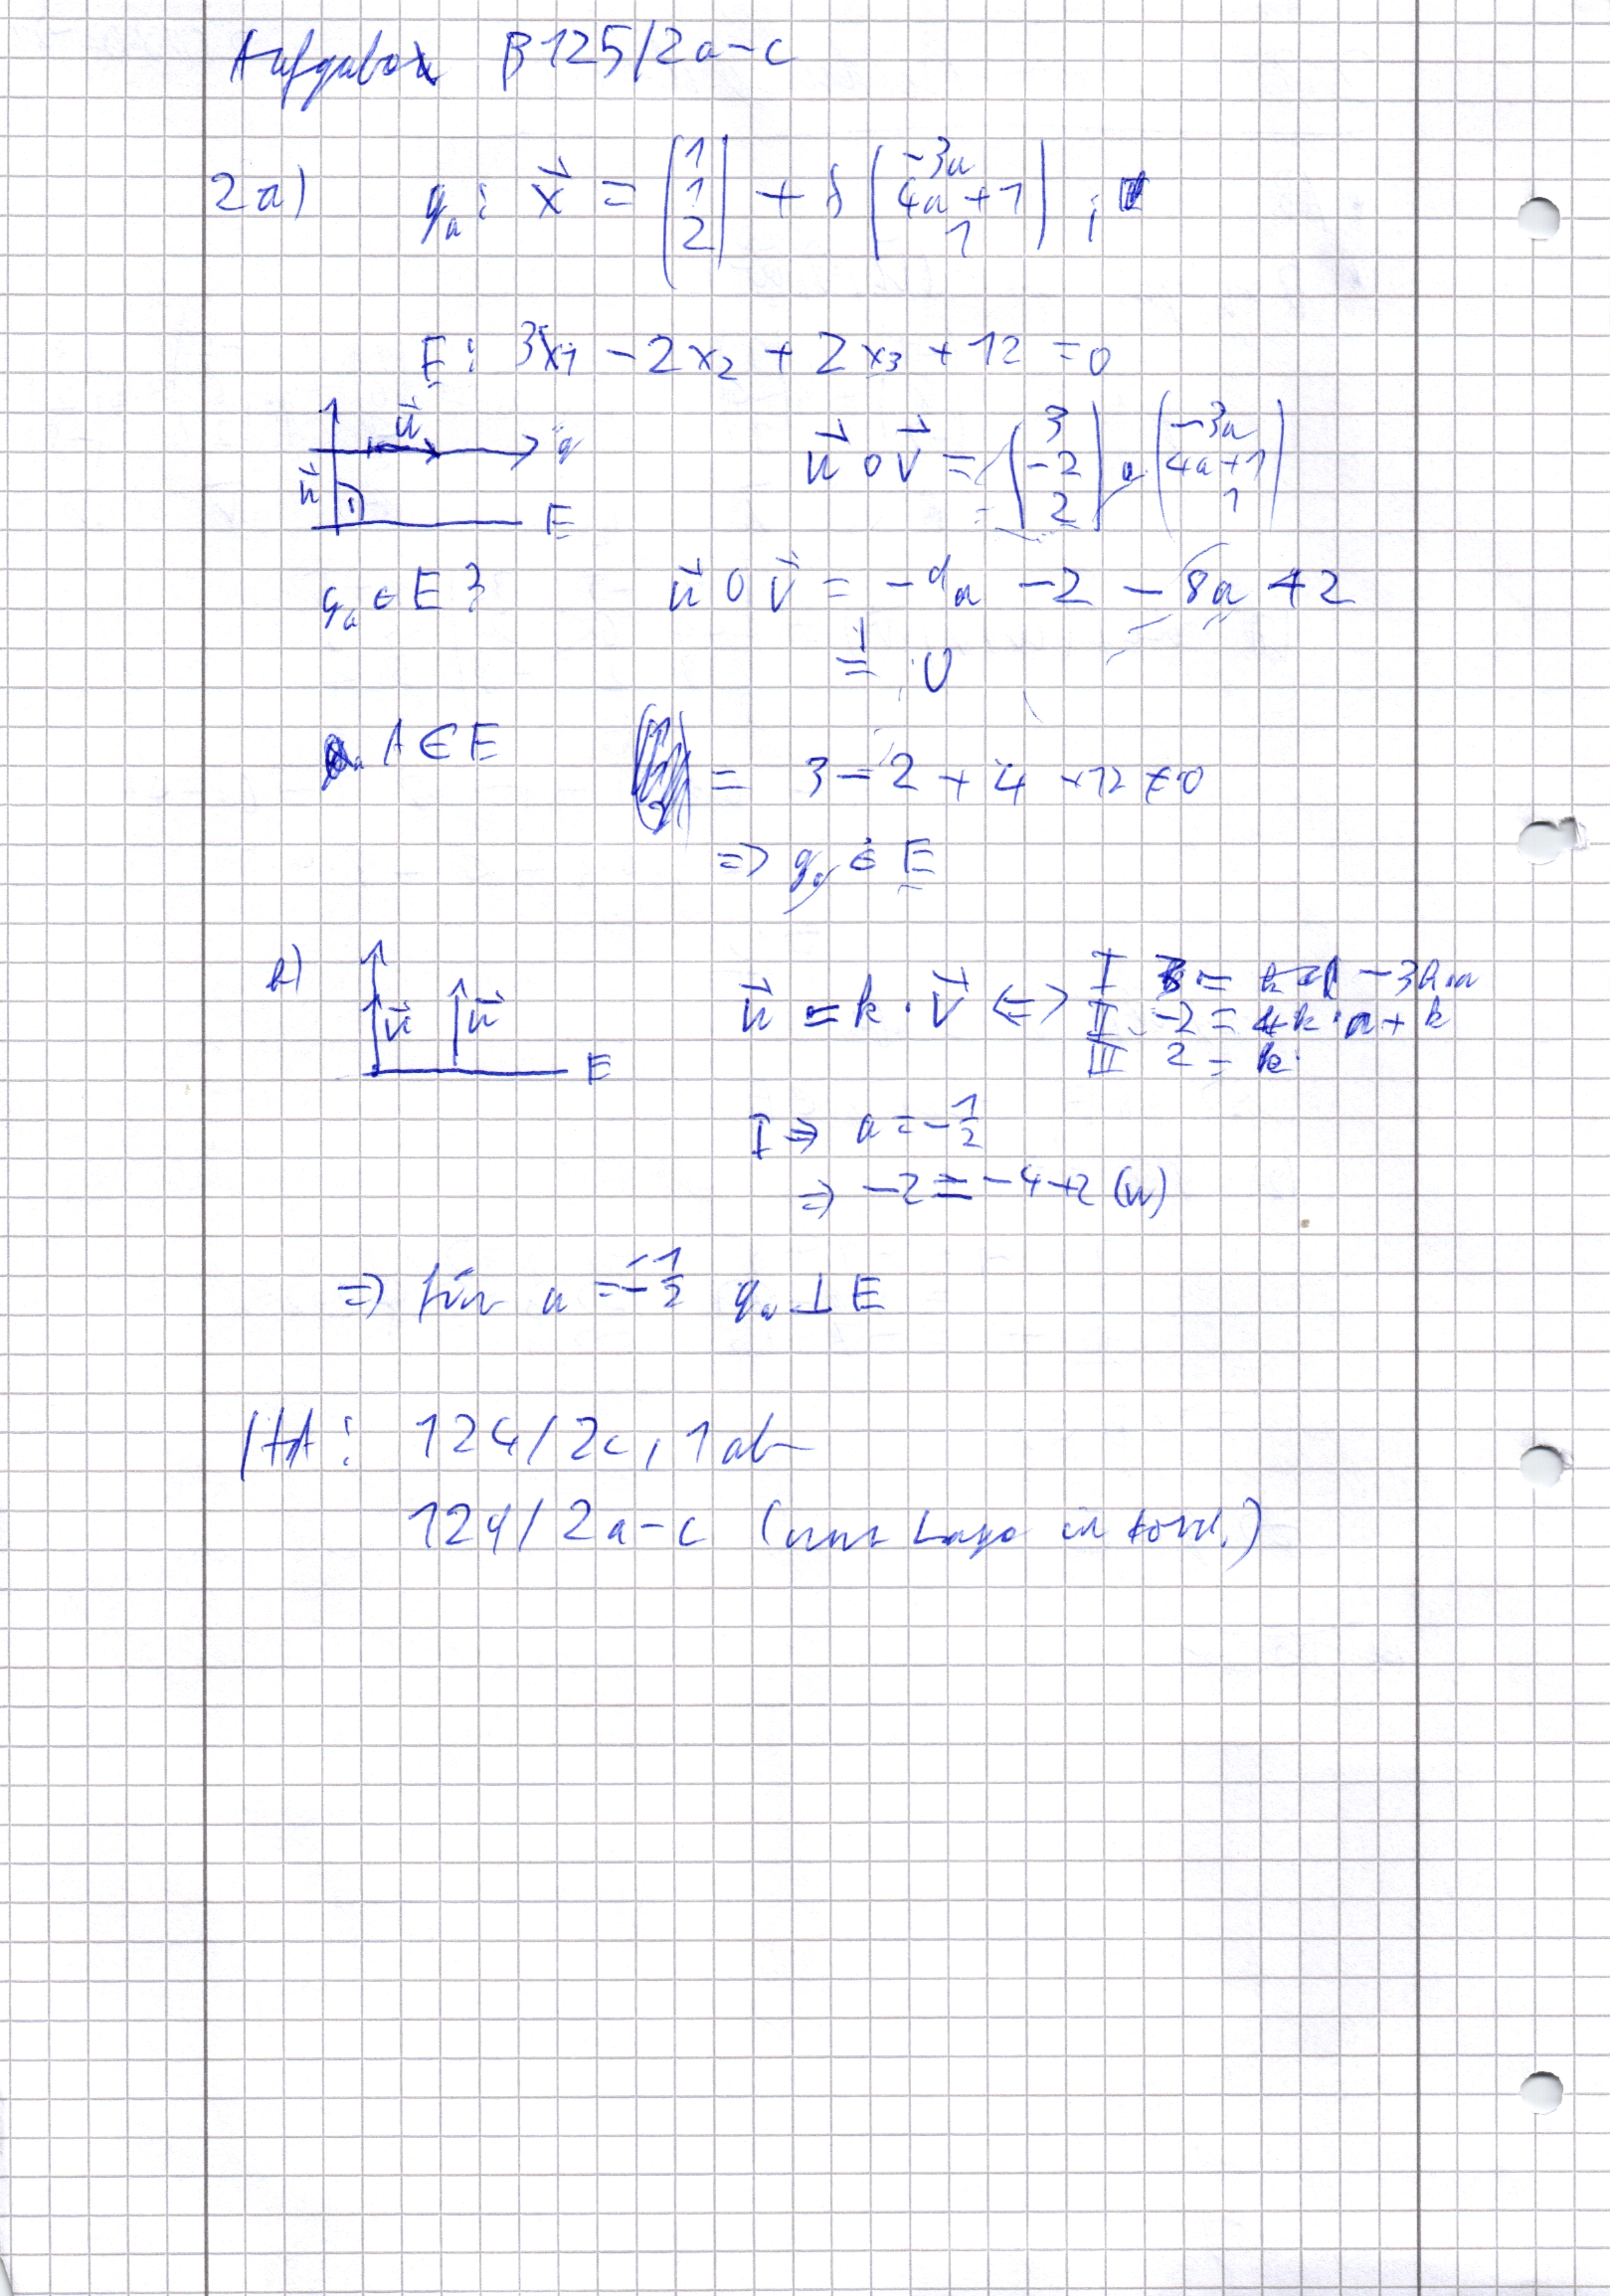 Aufgaben B125/2a-c
2a) g_a: x⃗ = (1 1 2) + s (-3a 4a+1 1) ;
E: 3x₁ - 2x₂ + 2x₃ + 12 = 0
u⃗ g
n⃗ E
n⃗ ∘ v⃗ = (3 -2 2) ∘ (-3a 4a+1 1)
g_a ∈ E? n⃗ ∘ v⃗ = -9a - 2 - 8a + 2
= 0
A ∈ E = 3 - 2 + 4 + 12 ≠ 0
=> g_a ∉ E
b) v⃗ n⃗ E
n⃗ = k · v⃗ <=> I 3 = -3k·a
II -2 = 4k·a + k
III 2 = k
I => a = -1/2
=> -2 = -4+2 (w)
=> für a = -1/2 g_a ⊥ E
HA: 124/2c, 1ab
124/2a-c (nur Lage in)